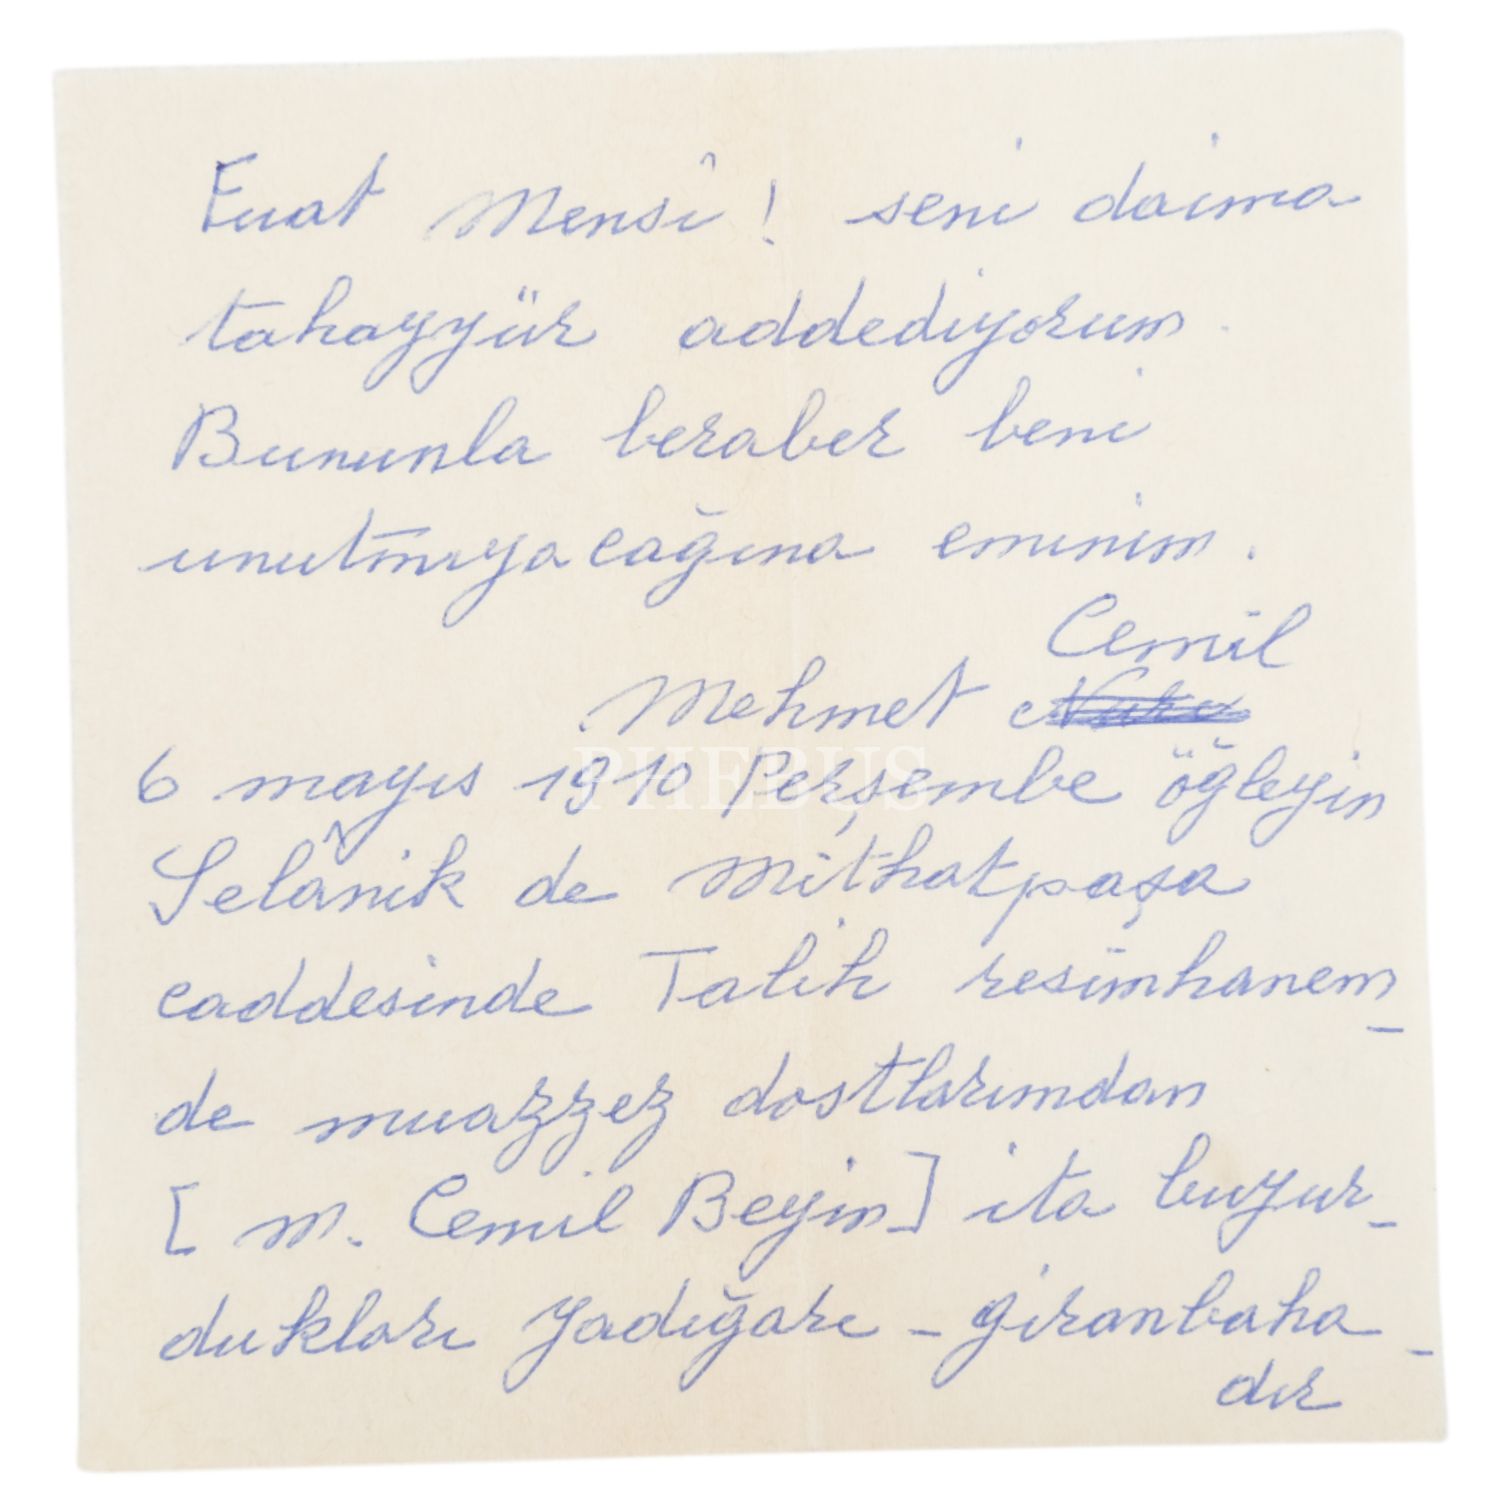 Fuat Mensî! seni daima
tahayyür addediyorum.
Bununla beraber beni
unutmıyacağına eminim.
Cemil
Mehmet
6 mayıs 1910 Perşembe öğleyin
Selânik de Mithatpaşa
caddesinde Talih resimhanem-
de muazzez dostlarımdan
[ M. Cemil Beyin ] ita buyur-
dukları yadiğarı - giranbaha-
dır
PHEBUS